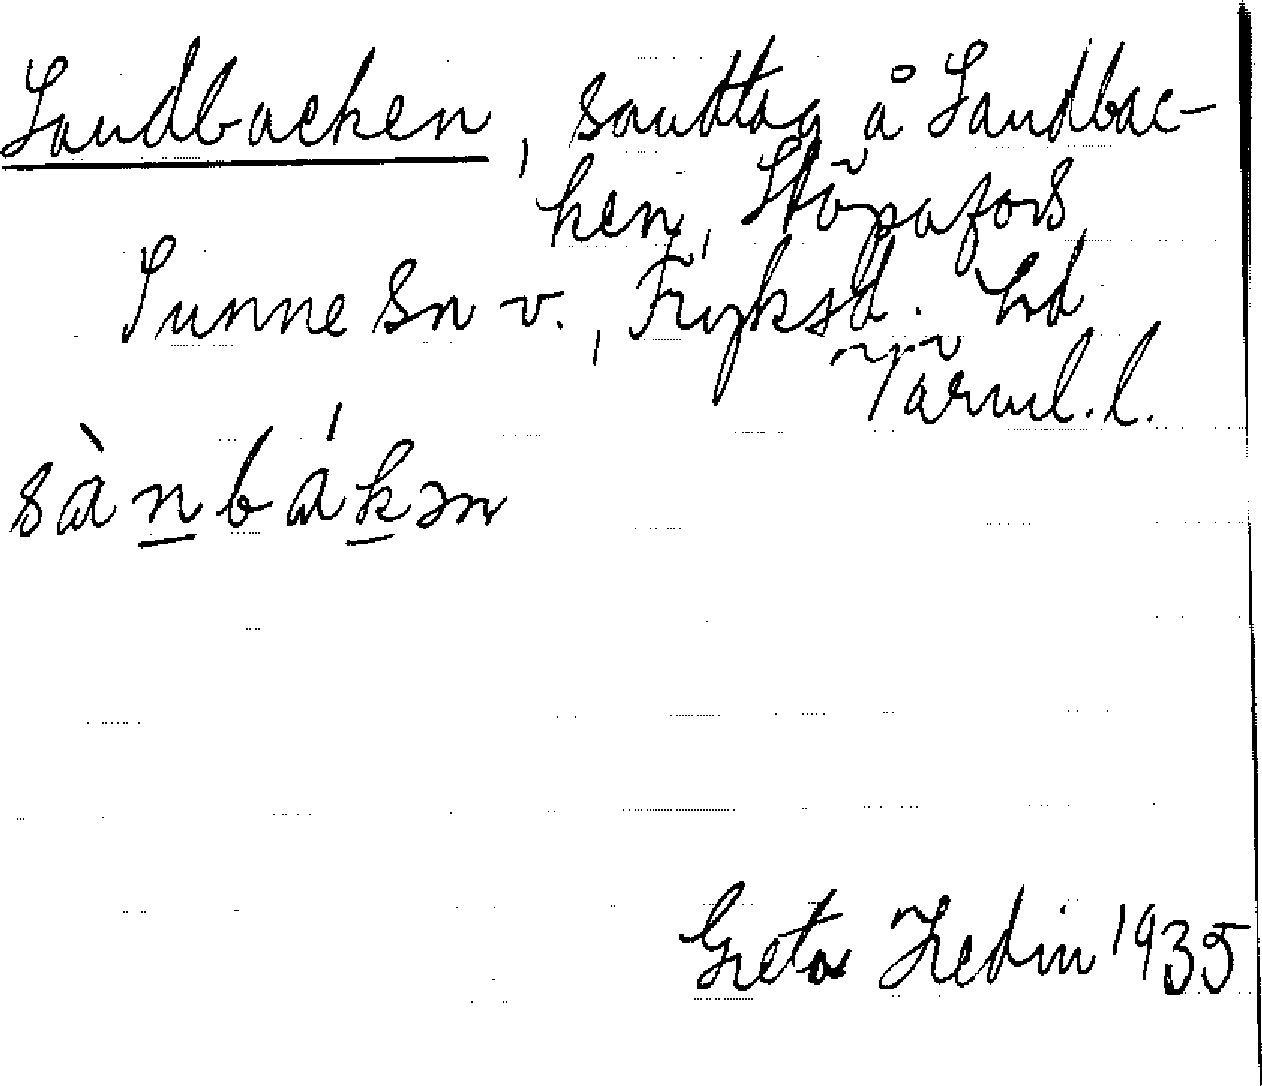 Sandbacken, sandtag å Sandbac-
ken, Stöpafors,
Sunne sn v., Fryksd. hd
Värml. l.
sànbákən
Greta Hedin 1935